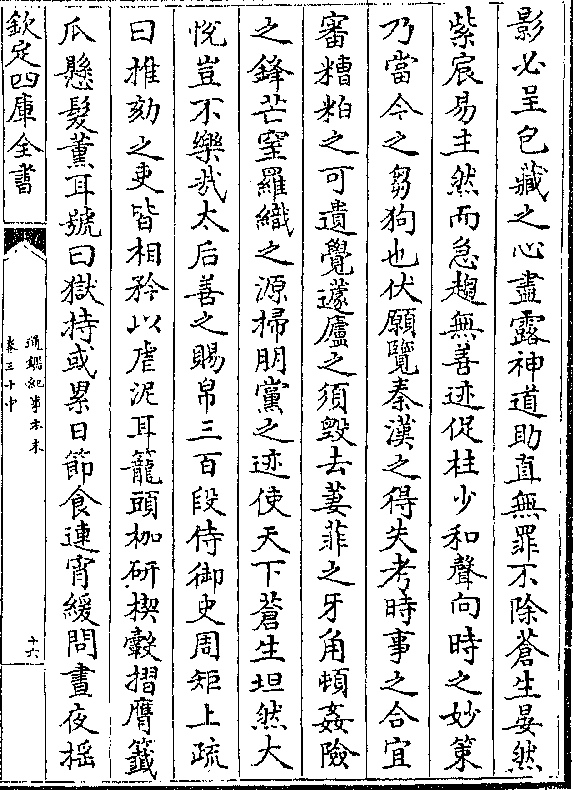 影必呈包藏之心盡露神道助直無罪不除蒼生晏然
紫宸易主然而急趨無善迹促柱少和聲向時之妙策
乃當今之芻狗也伏願覽秦漢之得失考時事之合宜
審糟粕之可遺覺蘧廬之須毀去萋菲之牙角頓姦險
之鋒芒窒羅織之源掃朋黨之迹使天下蒼生坦然大
悅豈不樂哉太后善之賜帛三百段侍御史周矩上疏
曰推劾之吏皆相矜以虐泥耳籠頭枷研楔轂摺膺籤
爪懸髮薰耳號曰獄持或累日節食連宵緩問晝夜揺
欽定四庫全書
通鑑紀事本末
卷三十中
十六